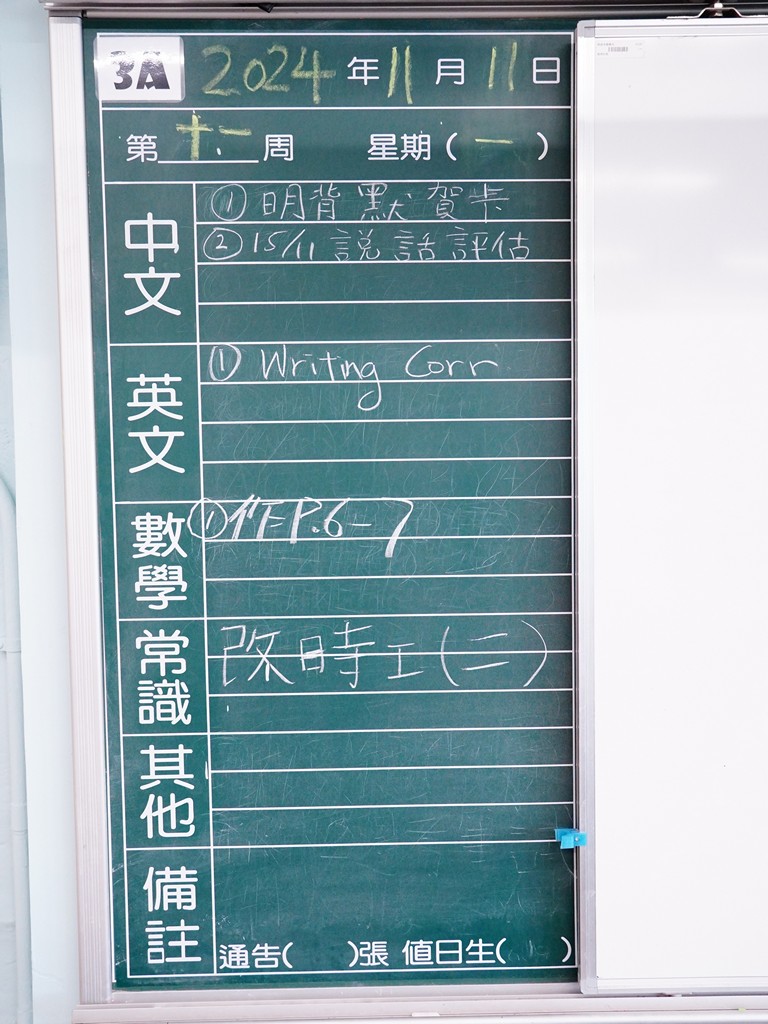 3A 2024年11月11日
第十一周 星期(一)
中文
①明背默賀卡
②15/11說話評估
英文
① Writing Corr
數學
①作P.6-7
常識
改時工(二)
其他
備註
通告( )張 值日生( )